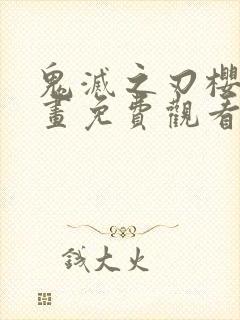 鬼滅之刃櫻
畫免費觀看
錢大火